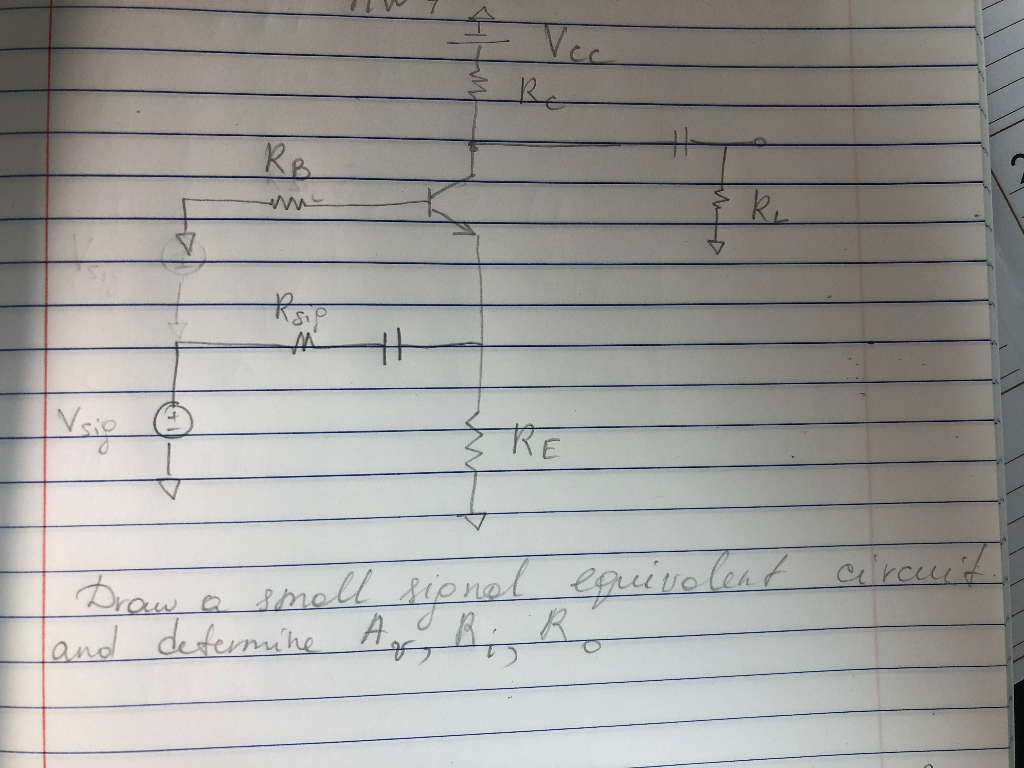 Vcc
Rc
RB
RL
Vsig
Rsig
Vsig
RE
Draw a small signal equivalent circuit.
and determine Av, Ri, Ro